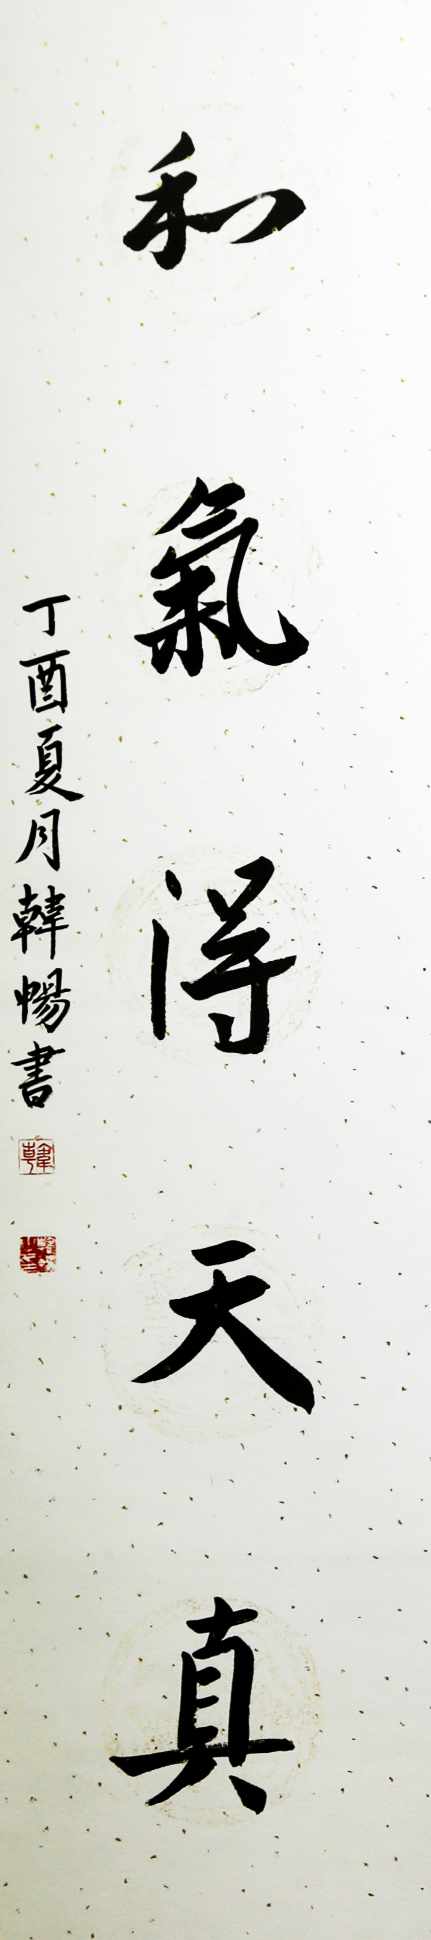 和氣得天真
丁酉夏月韓暢書
韓